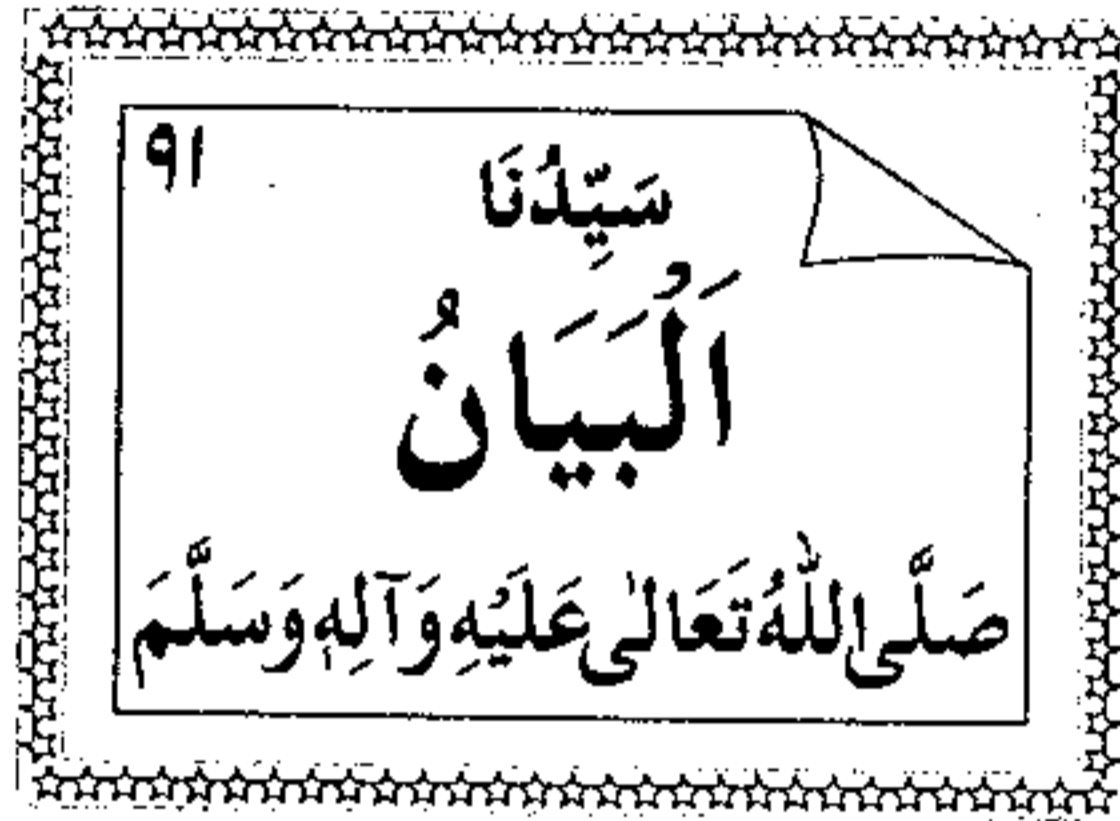 ٩١
سَيِّدُنَا
اَلْبَيَانُ
صَلَّى اللّٰهُ تَعَالٰى عَلَيْهِ وَآلِهٖ وَسَلَّمَ